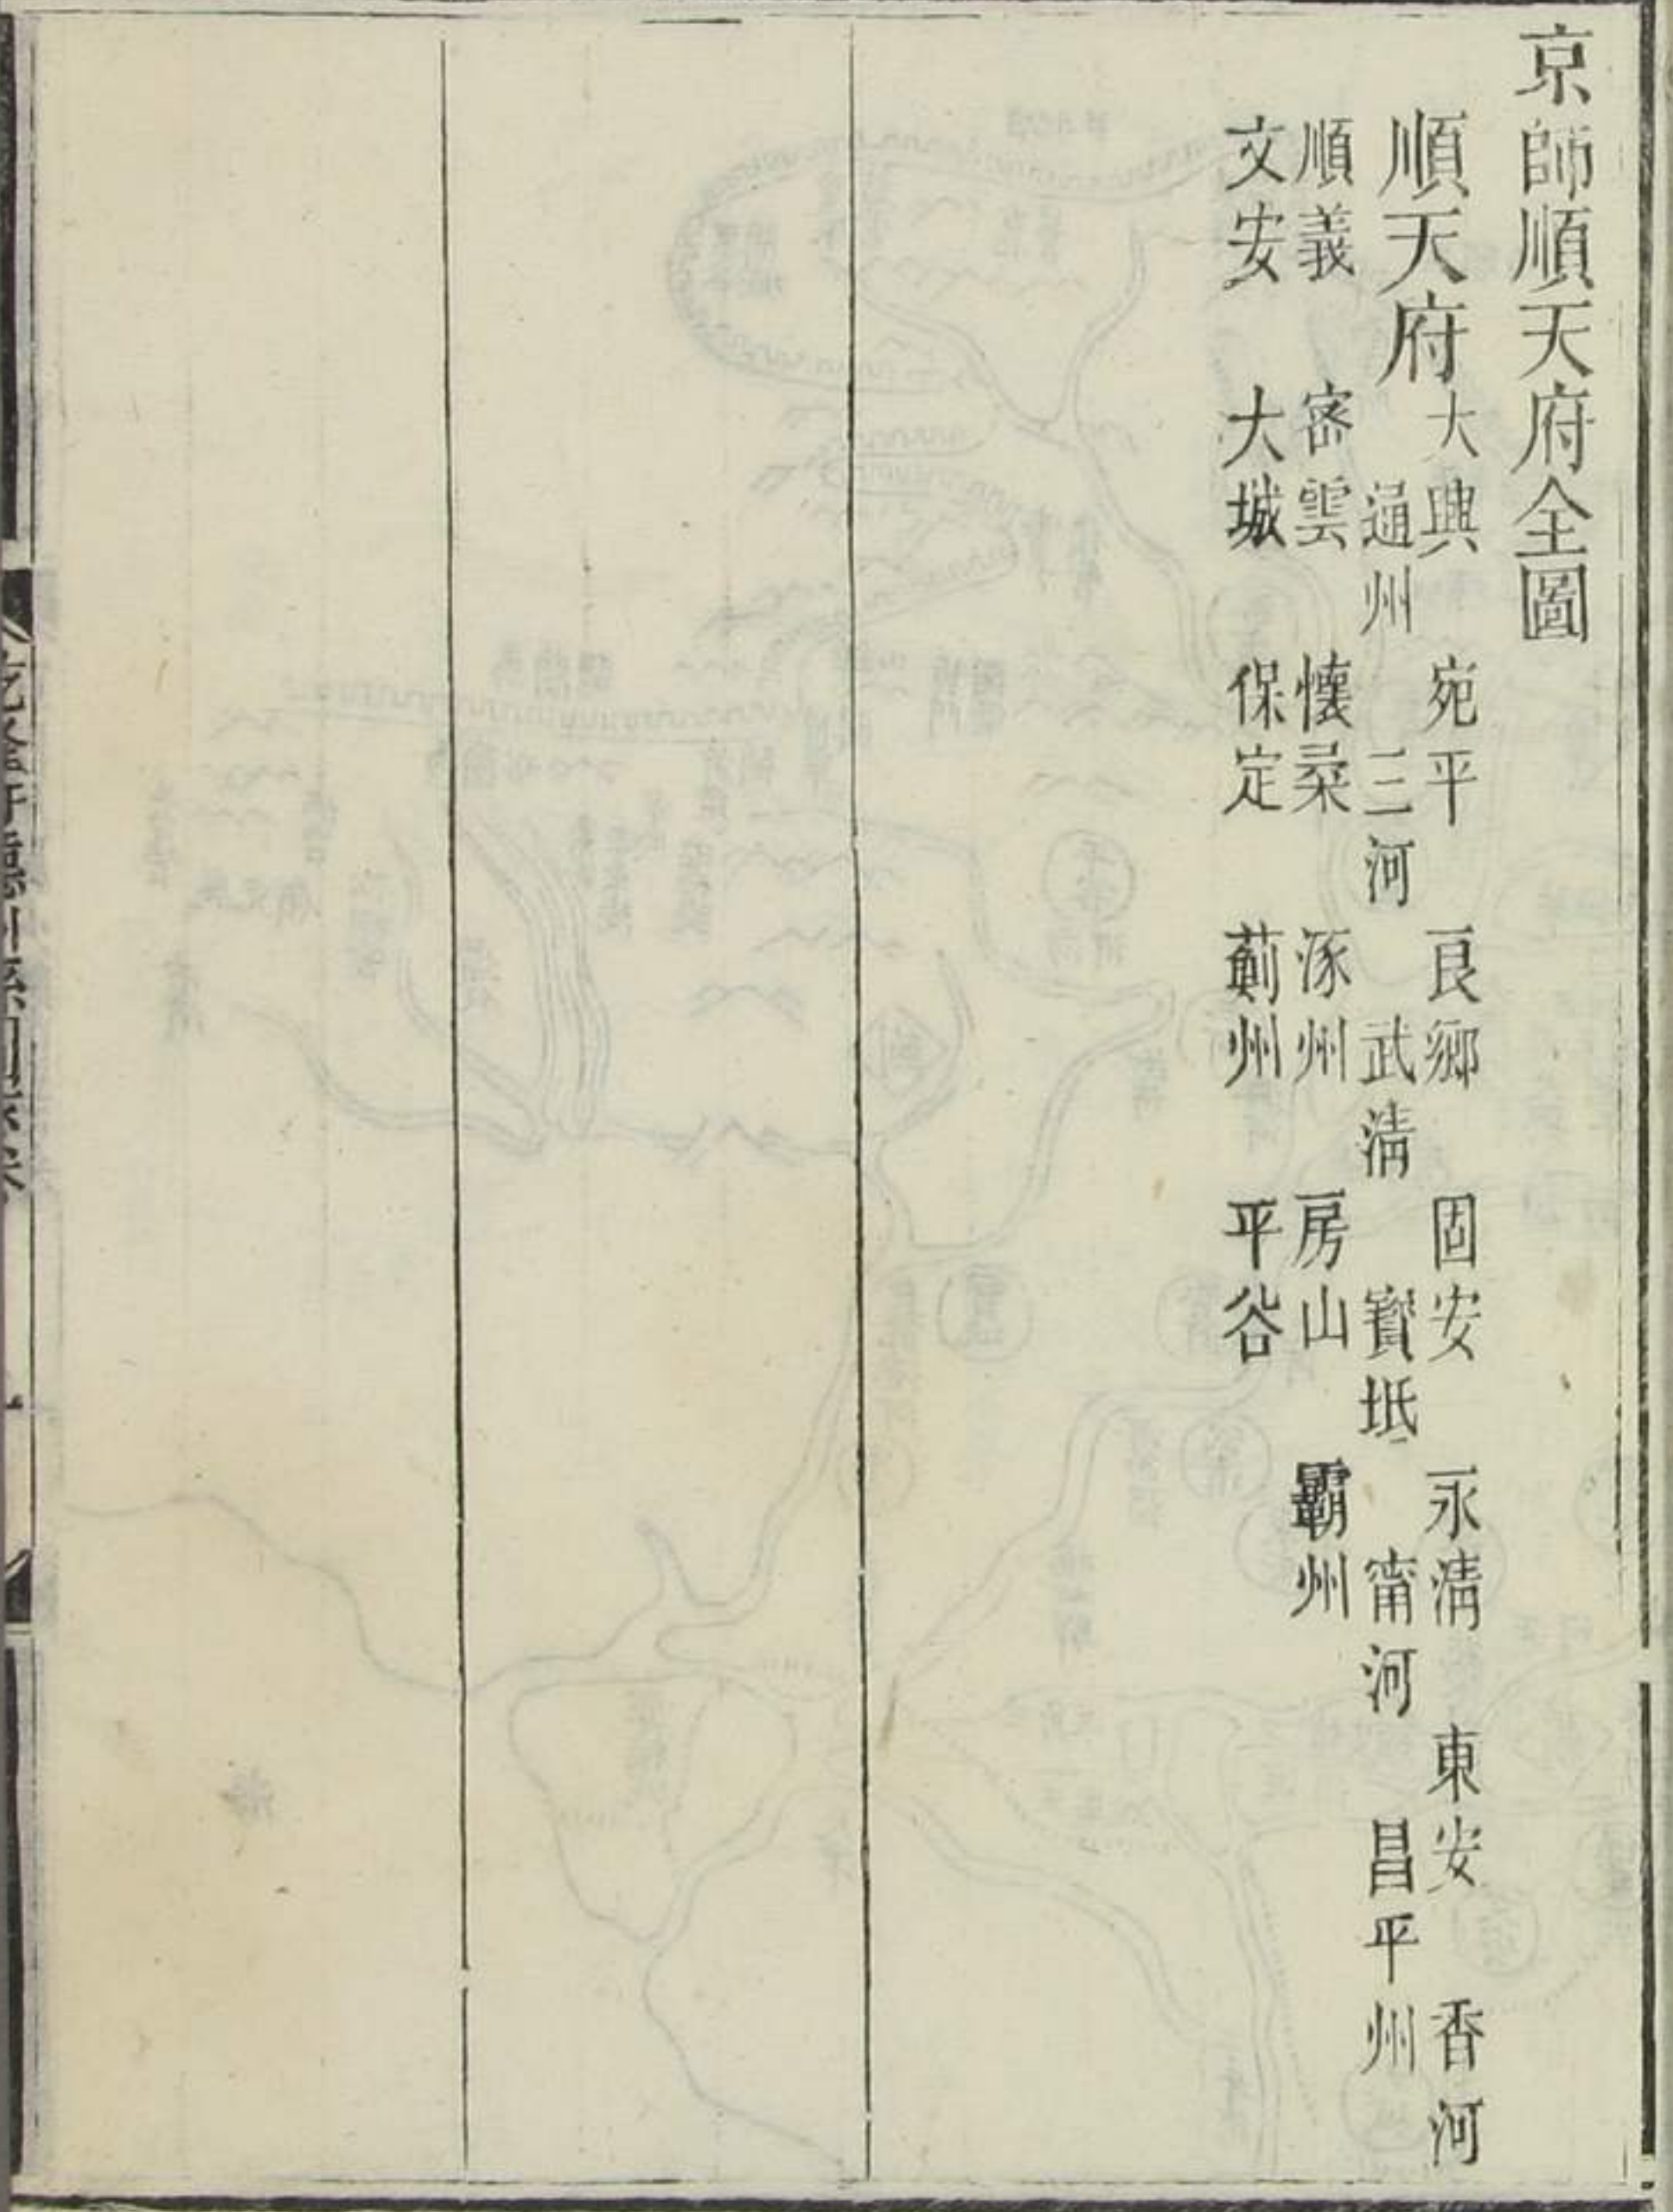 京師順天府全圖
順天府
大興 宛平 良鄉 固安 永淸 東安 香河
通州 三河 武淸 寳坻 甯河 昌平州
順義 密雲 懷柔 涿州 房山 霸州
文安 大城 保定 薊州 平谷